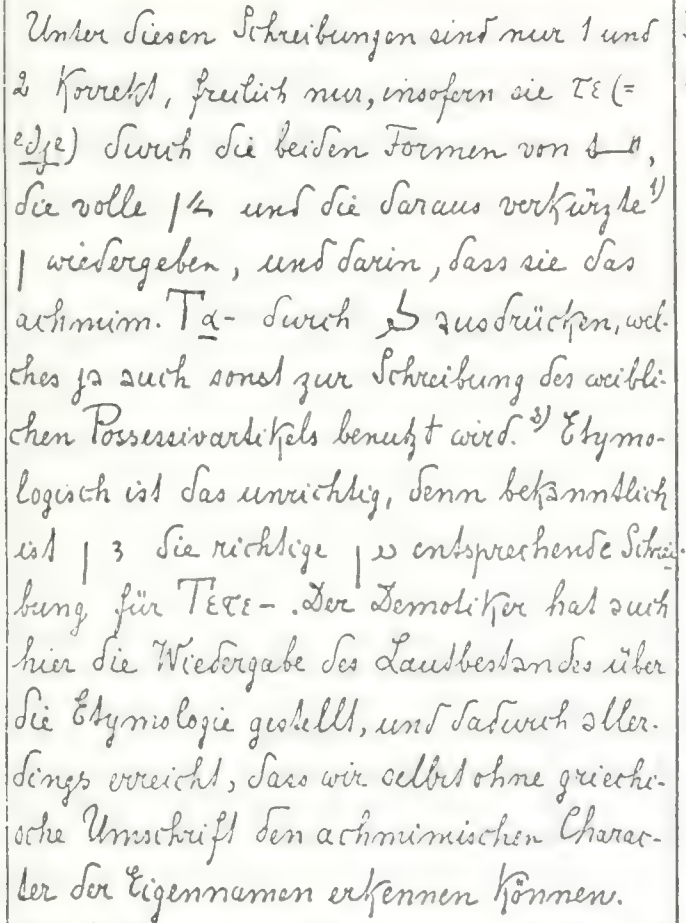 Unter diesen Schreibungen sind nur 1 und
2 korrekt, freilich nur, insofern sie ⲧⲉ (=
edje) durch die beiden Formen von
die volle und die daraus verkürzte 1)
wiedergeben, und darin, dass sie das
achmim. Ta- durch ausdrücken, wel-
ches ja auch sonst zur Schreibung des weibli-
chen Possessivartikels benutzt wird. 3) Etymo-
logisch ist das unrichtig, denn bekanntlich
ist die richtige entsprechende Schrei-
bung für Ⲧⲉⲧⲉ-. Der Demotiker hat auch
hier die Wiedergabe des Lautbestandes über
die Etymologie gestellt, und dadurch aller-
dings erreicht, dass wir selbst ohne griechi-
sche Umschrift den achmimischen Charac-
ter der Eigennamen erkennen können.